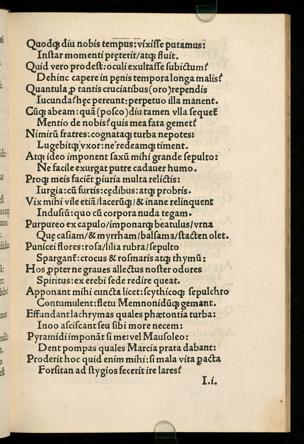 Quodq; diu nobis tempus: vixisse putamus:
Instar momenti pręterit/atq; fluit.
Quid vero prodest: oculi exultasse subictum?
Dehinc capere in pęnis tempora longa malis?
Quantula, p tantis cruciatibus (oro) rependis
Iucunda? hęc pereunt: perpetuo illa manent.
Cūq; abeam: quā (posco) diu tamen vlla sequet̃
Mentio de nobis? quis mea fata gemet?
Nimirū fratres: cognataq; turba nepotes:
Lugebitq; vxor: ne redeamq; timent.
Atq; ideo imponent saxū mihi grande sepulto:
Ne facile exurgat putre cadauer humo.
Proq; meis facięt piuria multa relictis:
Iurgia: cū furtis: cędibus: atq; probris.
Vix mihi vile etiā/lacerūq;/& inane relinquent
Indusiū: quo cū corpora nuda tegam.
Purpureo ex capulo/imponarq; beatulus/vrna
Que casiam/& myrrham/balsama/stacten olet.
Punicei flores: rosa/lilia rubra/sepulto
Spargant̃: crocus & rosmaris atq; thymū:
Hos, ppter ne graues allectus noster odores
Spiritus: ex erebi sede redire queat.
Apponant mihi cuncta licet: scythicoq; sepulchro
Contumulent: fletu Memnonidūq; gemant.
Effundant lachrymas quales phætontia turba:
Inoo asciscant seu sibi more necem:
Pyramidi imponāt si me: vel Mausoleo:
Dent pompas quales Marcia prata dabant:
Proderit hoc quid enim mihi: si mala vita pacta
Forsitan ad stygios fecerit ire lares?
I.i.